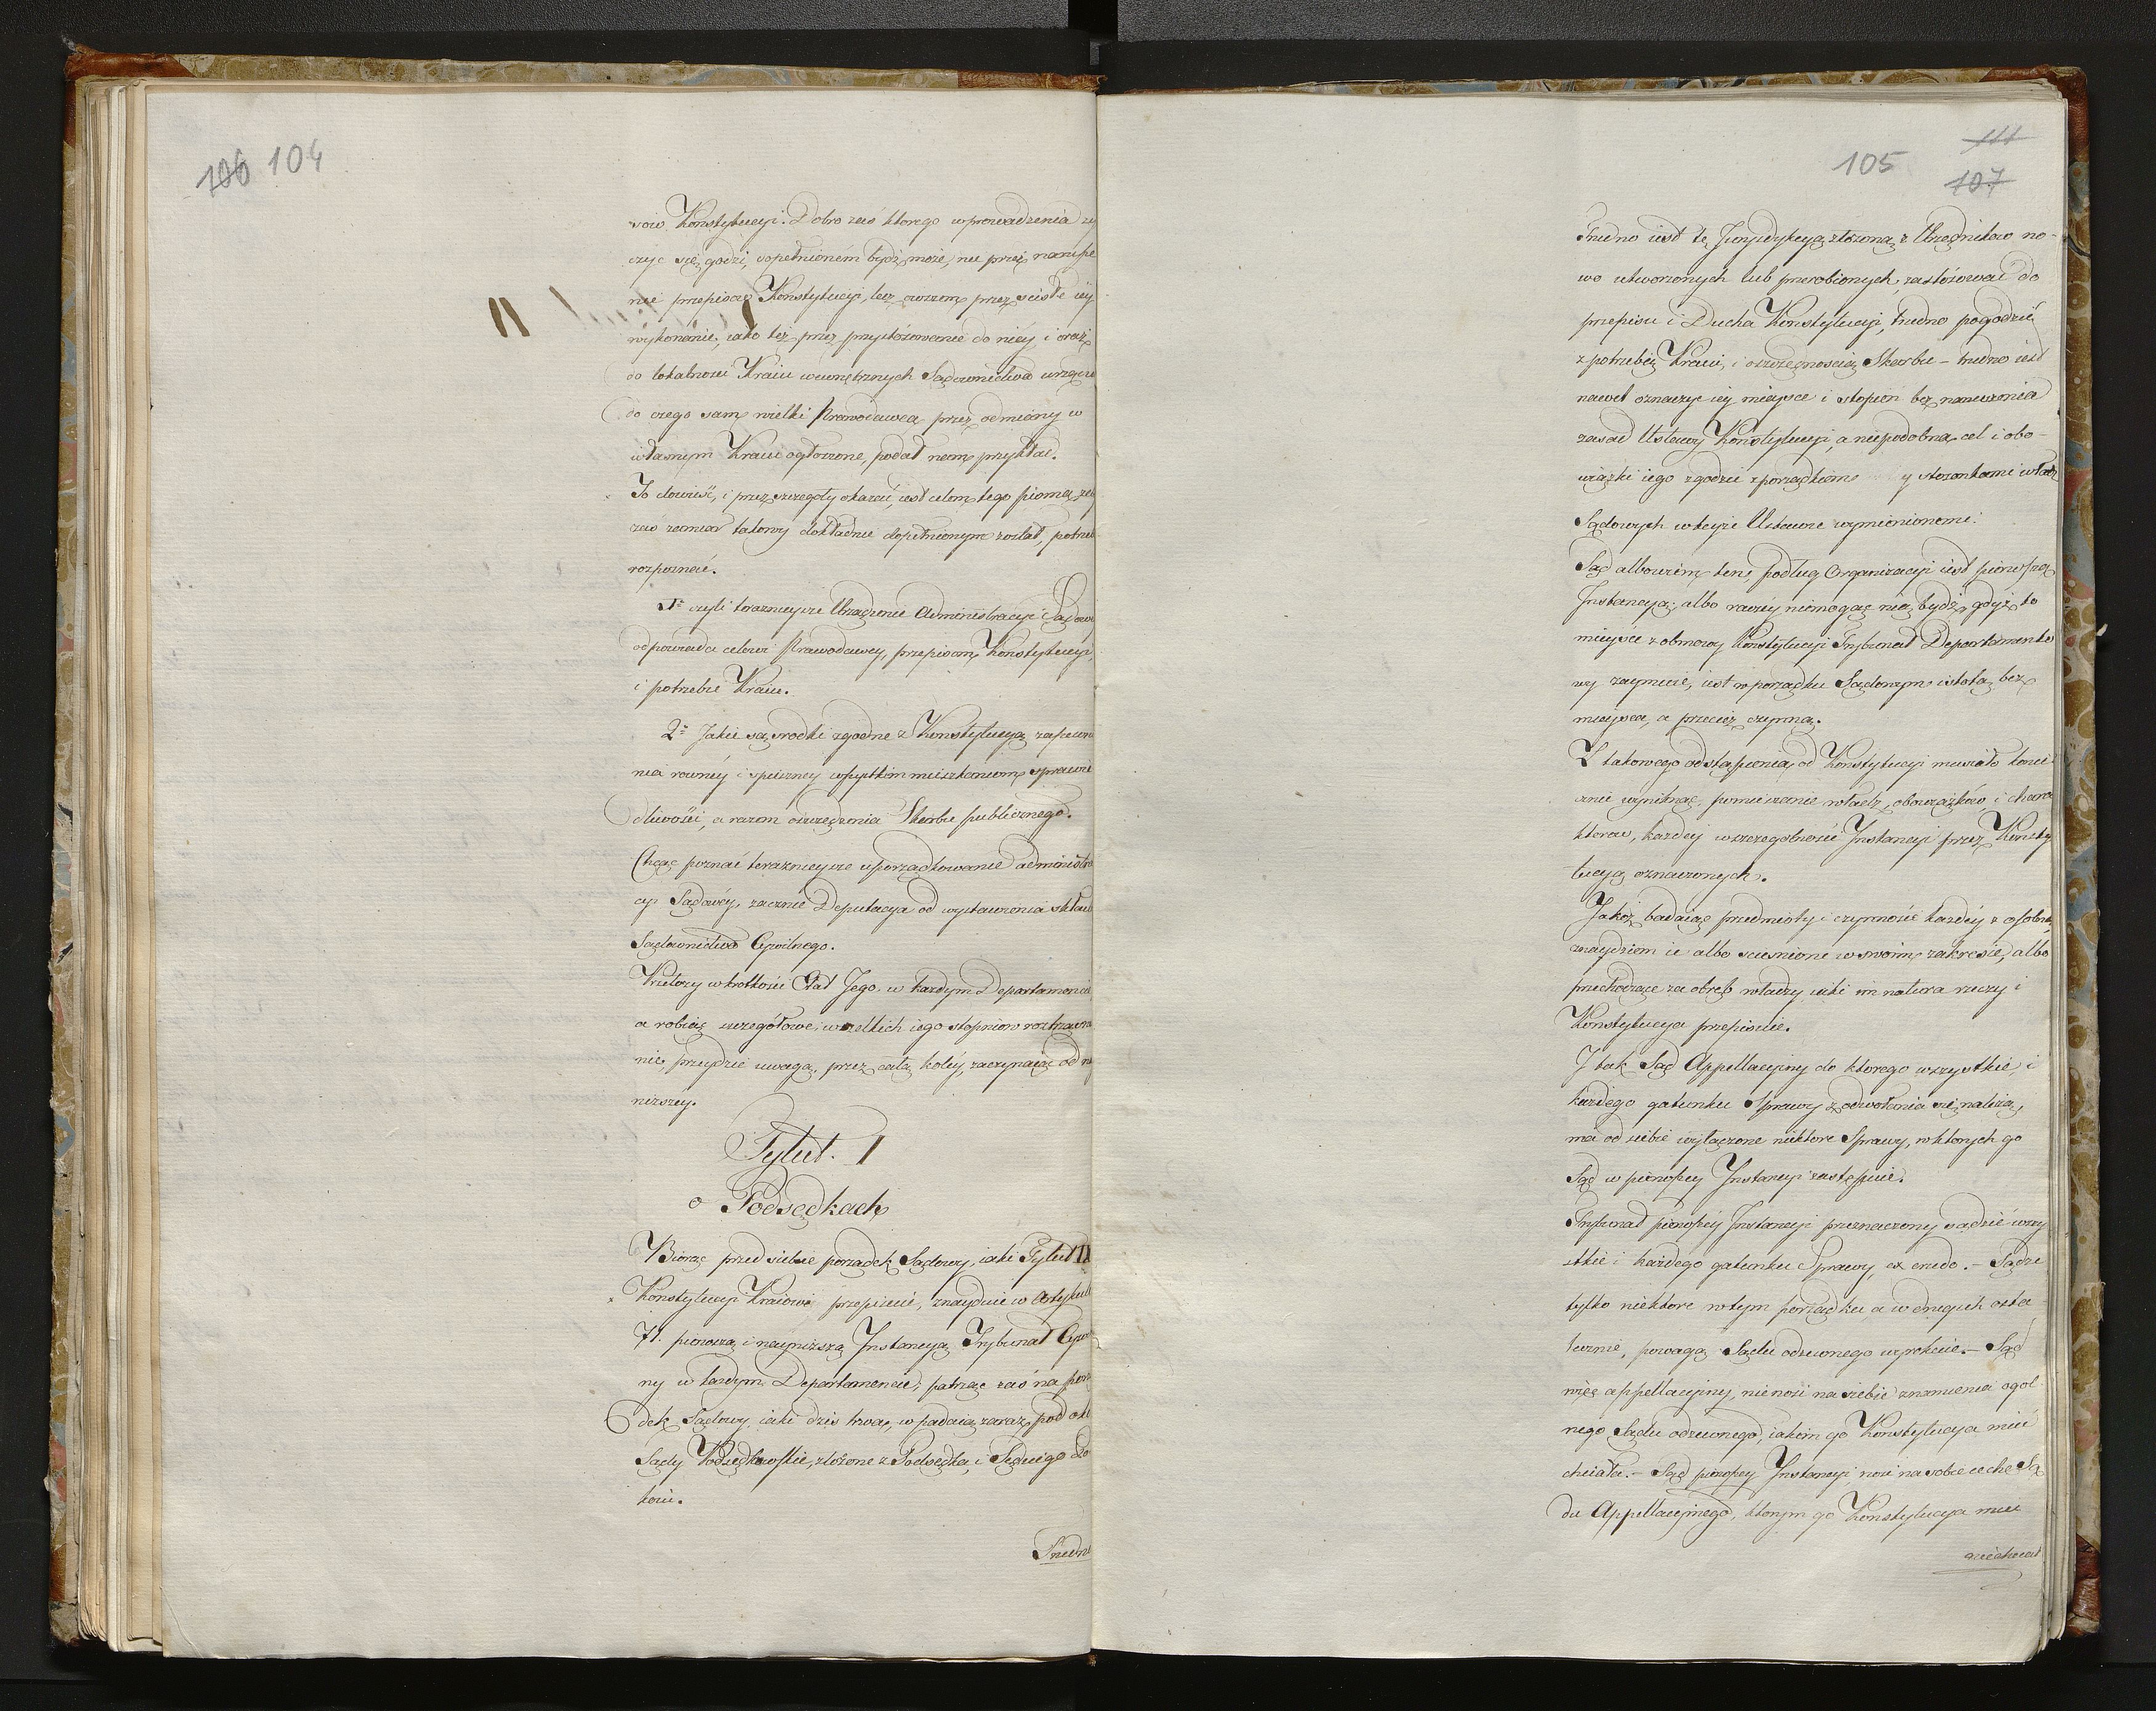 106 104
sów Konstytucyi. Dobro zaś ktorego wprowadzenia ży
czyć się godzi, dopełnioném bydź może, nie przez narusze
nie przepisow Konstytucyi, lecz owszem przez scisłe iey
wykonanie, iako też przez przystósowanie do niéy i oraz
do lokalności Kraiu wewnętrznych Sądownictwa urządze
do czego sam wielki Prawodawca przez odmiany w
własnym Kraiu ogłoszone, podał nam przykład.
To dowieść, i przez szczegoły okazać, iest celem tego pisma, żeby
zaś zamiar takowy dokładnie dopełnionym został, potrzeba
rozpoznać.
1º czyli teraznieysze Urządzenie Administracyi Sądowey
odpowiada celowi Prawodawcy, przepisom Konstytucyi,
i potrzebie Kraiu.
2º Jakie są srodki zgodne z Konstytucyą zapewnie
nia rowney i spieszney wszystkim mieszkańcom sprawie
dliwości, a razem oszczędzenia Skarbu publicznego.
Chcąc poznać teraznieysze uporządkowanie administra
cyi Sądowéy, zacznie Deputacya od wystawienia składu
Sądownictwa Cywilnego.
w krotkości Skład Jego w każdym Departamencie
a robiąc szczegółowe wszelkich iego stopniow roztrząsa
nie, przeydzie uwagą, przez całą koléy, zaczynaiąc od nay
niższey.
Tytuł. I
o Podsędkach
Biorąc przed siebie porządek Sądowy, iaki Tytuł IX
Konstytucyi Kraiowéy przepisuie, znayduie w Artykule
71. pierwszą i nayniższą Instancyą Trybunał Cywil
ny w każdym Departamencie, patrząc zaś na porzą
dek Sądowy iaki dziś trwa, wpadaią zaraz pod oko
Sądy Podsędkowskie, złożone z Podsędka, i Sędziego Po
koiu.
Trudno
105 111
107
Trudno iest tę Juryzdykcyą złożoną z Urzędnikow no-
wo utworzonych lub przerobionych zastósować do
przepisu i Ducha Konstytucyi, trudno pogodzić
z potrzebą Kraiu, i oszczędnością Skarbu – trudno iest
nawet oznaczyć iey mieysce i stopień bez naruszenia
zasad Ustawy Konstytucyi, a niepodobna cel i obo-
wiązki iego zgodzić z porządkiem y stosunkami władz
Sądowych w teyże Ustawie wymienionemi.
Sąd albowiem ten, podług Organizacyi iest pierwszą
Instancyą; albo raczéy niemogąc nią bydź, gdyż to
mieysce z obmowy Konstytucyi Trybunał Departamento
wy zaymuie, iest w porządku Sądowym istotą bez
mieysca, a przecież czynną.
Z takowego odstąpienia od Konstytucyi musiało koni
cznie wyniknąć, pomieszanie władz, obowiązków i chara
kterow, każdéy w szczegolności Instancyi przez Konsty
tucyą oznaczonych.
Jakoż badaiąc przedmioty i czynności każdéy z osobna,
znaydziem ie albo scieśnione w swoim zakresie, albo
przechodzące za obręb władzy, iaki im natura rzeczy i
Konstytucya przepisuie.
I tak Sąd Appellacyiny do ktorego wszystkie, i
każdego gatunku Sprawy z odwołania się należą,
ma od siebie wyłączone niektore Sprawy, w ktorych go
Sąd w pierwszey Instancyi zastępuie.
Trybunał pierwszéy Instancyi przeznaczony sądzić wszy
stkie i każdego gatunku Sprawy, ex crudo. – Sądzi
tylko niektore w tym porządku, a w drugich osta
tecznie, powagą Sądu odzewnego wyrokuie. – Sąd
więc appellacyiny, nie nosi na siebie znamienia ogol-
nego Sądu odzewnego, iakim go Konstytucya mieć
chciała. – Sąd pierwszey Instancyi nosi na sobie cechę Są
du Appellacyinego, ktorym go Konstytucya mieć
niechciała